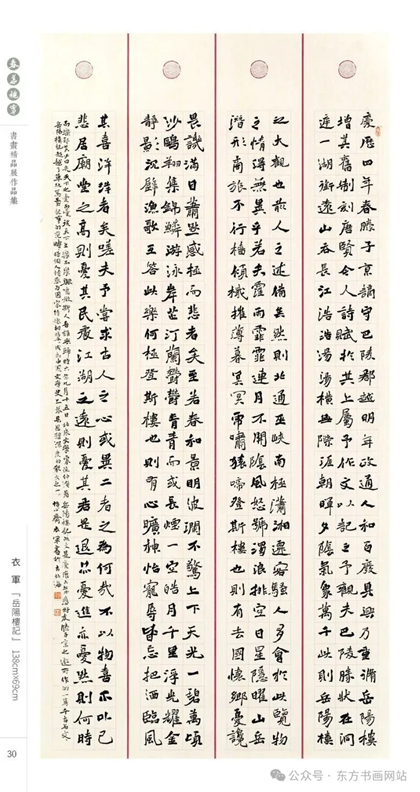 慶曆四年春滕子京謫守巴陵郡越明年政通人和百廢具興乃重修岳陽樓
增其舊制刻唐賢今人詩賦於其上屬予作文以記之予觀夫巴陵勝狀在洞
庭一湖銜遠山吞長江浩浩湯湯橫無際涯朝暉夕陰氣象萬千此則岳陽樓
之大觀也前人之述備矣然則北通巫峽南極瀟湘遷客騷人多會於此覽物
之情得無異乎若夫霪雨霏霏連月不開陰風怒號濁浪排空日星隱曜山岳
潛形商旅不行檣傾楫摧薄暮冥冥虎嘯猿啼登斯樓也則有去國懷鄉憂讒
畏譏滿目蕭然感極而悲者矣至若春和景明波瀾不驚上下天光一碧萬頃
沙鷗翔集錦鱗游泳岸芷汀蘭鬱鬱青青而或長煙一空皓月千里浮光耀金
靜影沉璧漁歌互答此樂何極登斯樓也則有心曠神怡寵辱皆忘把酒臨風
其喜洋洋者矣嗟夫予嘗求古人之心或異二者之為何哉不以物喜不以己
悲居廟堂之高則憂其民處江湖之遠則憂其君是退亦憂進亦憂然則何時
書畫精品展作品集
衣軍「岳陽樓記」 138cm×69cm
30
公众号·东方书画网站